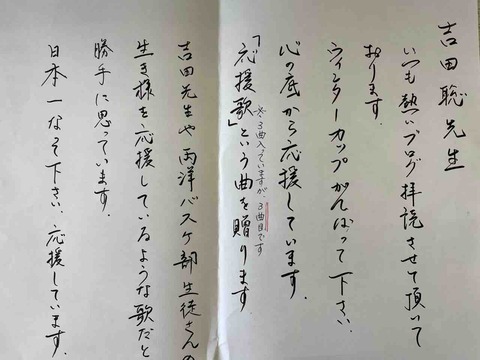 吉田聡先生
いつも熱いブログ拝読させて頂いて
おります。
ウィンターカップがんばって下さい。
心の底から応援しています。
※3曲入っていますが、3曲目です
「応援歌」という曲を贈ります
吉田先生や両洋バスケ部生徒さんの
生き様を応援しているような歌だと
勝手に思っています。
日本一なって下さい。応援しています。